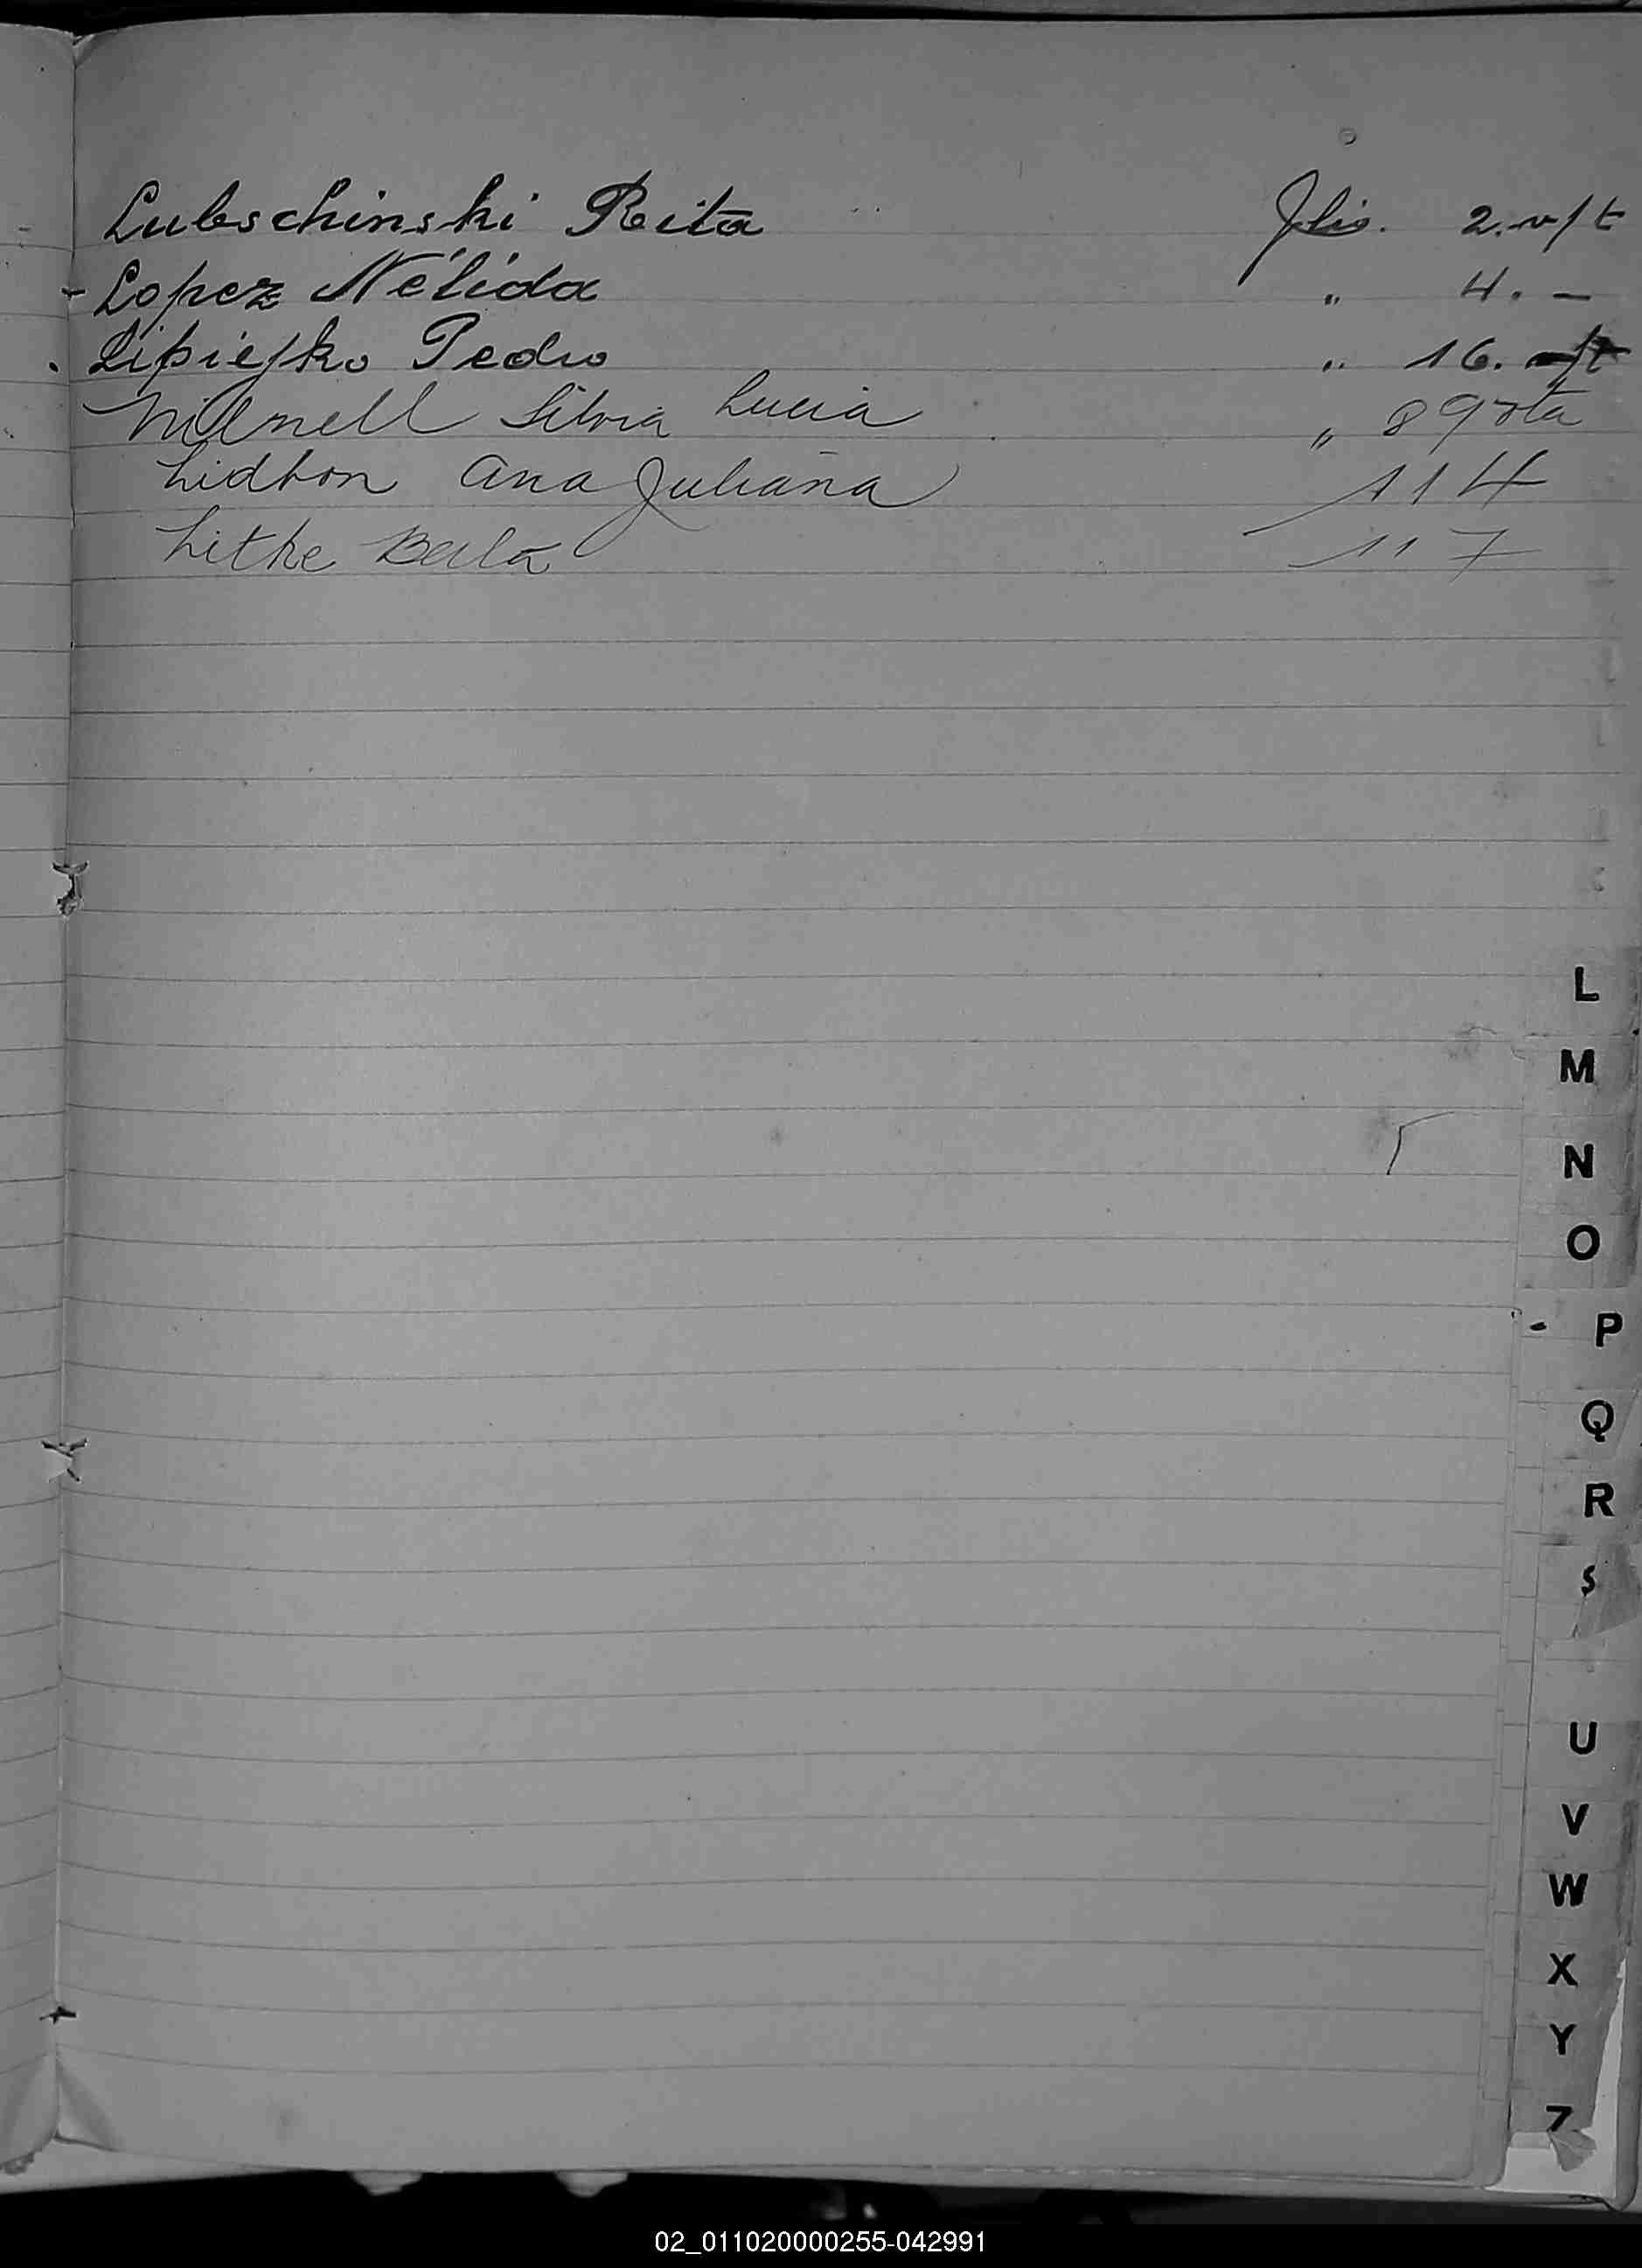 Lubschinski Rita Flio. 2. v/t
- Lopez Nélida " 4. -
. Lipiejko Pedro " 16.
Silvia Lucia " 89 vta
Lidbon Ana Juliana 114
Litke Berta 117
L
M
N
O
- P
Q
R
S
U
V
W
X
Y
Z
02_011020000255-042991